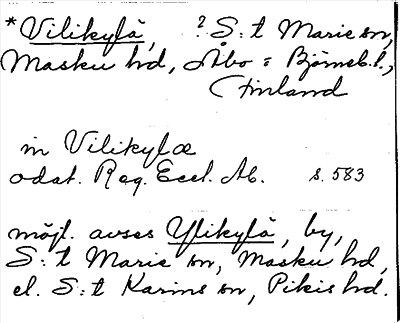 * Vilikylä, ? S:t Marie sn,
Masku hd, Åbo = Björneb. l.,
Finland
in Vilikylæ
odat. Reg. Eccl. Ab. s. 583
möjl. avses Ylikylä, by,
S:t Marie sn, Masku hd,
el. S:t Karins sn, Pikis hd.